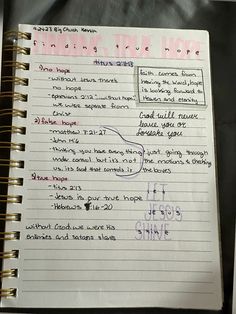 finding true hope
titus 2:13
1) no hope
-without Jesus there's
no hope
-ephesians 2:12 "without hope"
we were seperate from
christ
faith comes from
hearing the word, hope
is looking forward to
Heaven and eternity
God will never
leave you or
forsake you
2) false hope:
-matthew 7:21-27
-John 14:6
-thinking you have everything
under control but it's not
us, its God that controls
just going through
the motions & checking
the boxes
3) true hope
-titus 2:13
-Jesus is our true hope
-Hebrews 6:16-20
LET
JESUS
SHINE
without God we were His
enemies and satans slaves